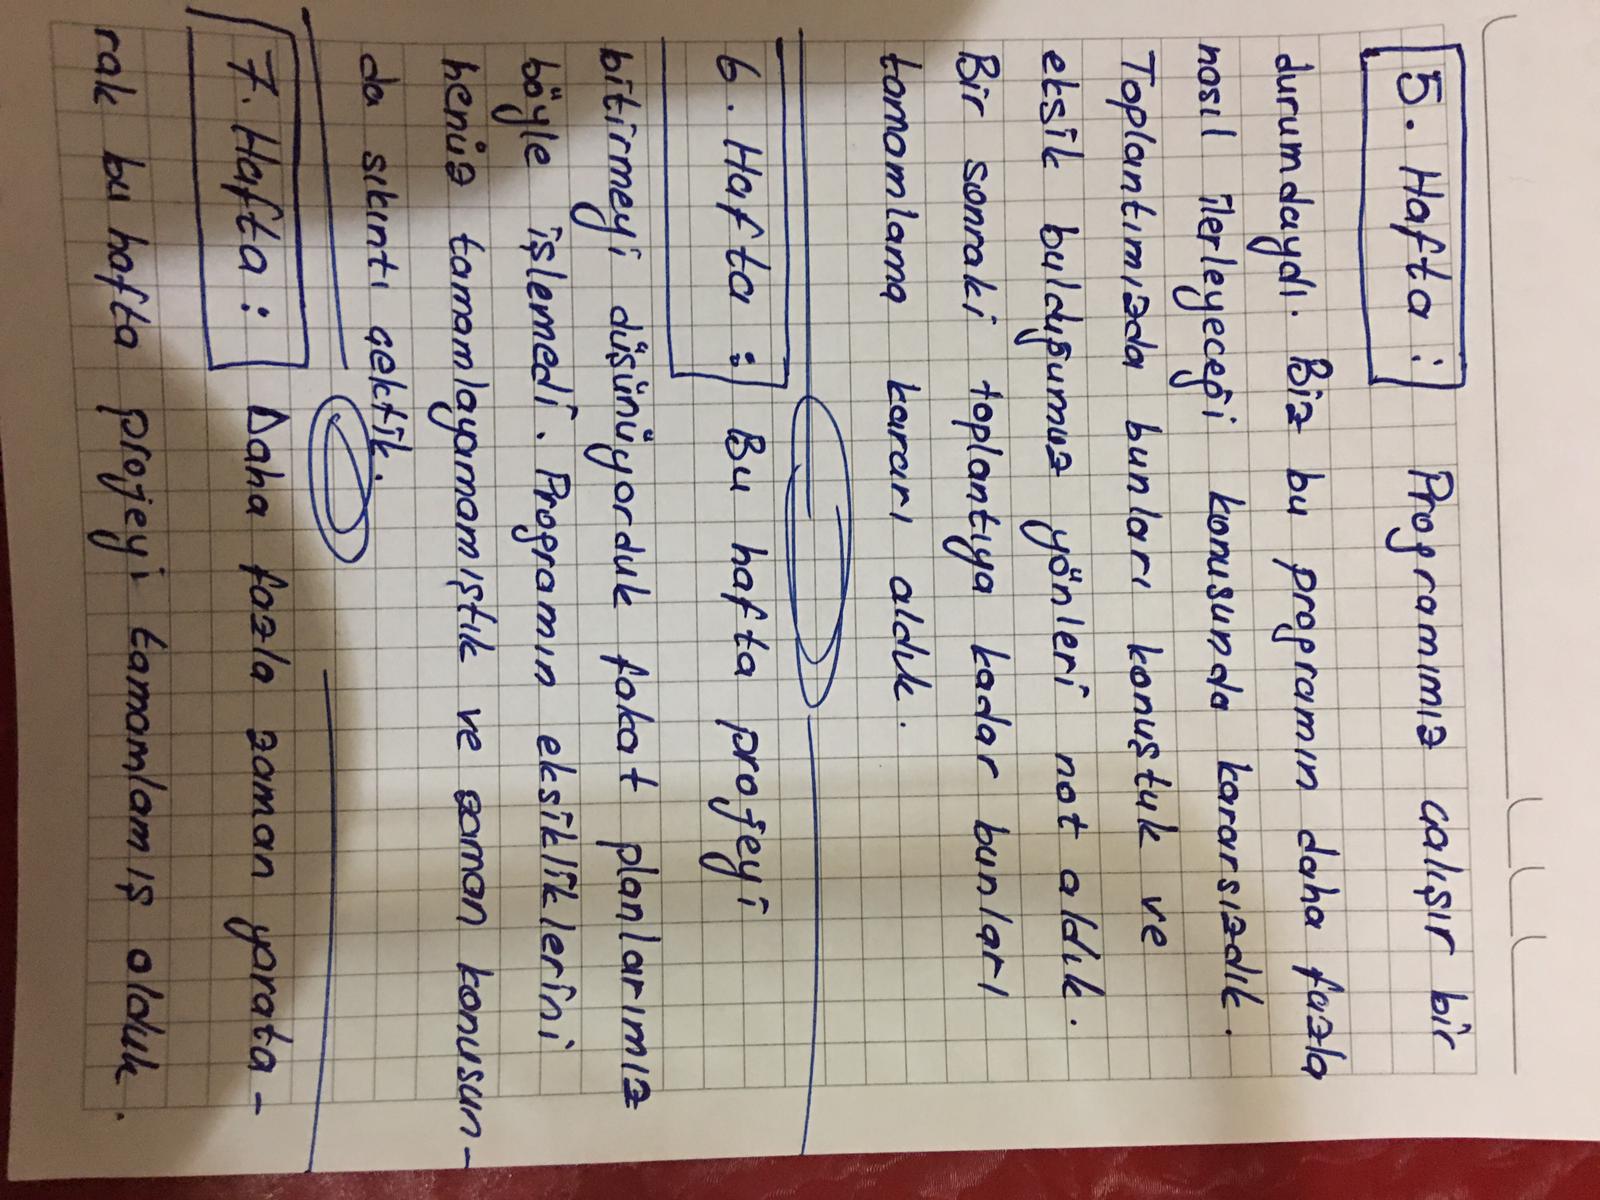 5. Hafta : Programımız çalışır bir
durumdaydı. Biz bu programın daha fazla
nasıl ilerleyeceği konusunda kararsızdık.
Toplantımızda bunları konuştuk ve
eksik bulduğumuz yönleri not aldık.
Bir sonraki toplantıya kadar bunları
tamamlama kararı aldık.
6. Hafta : Bu hafta projeyi
bitirmeyi düşünüyorduk fakat planlarımız
böyle işlemedi. Programın eksikliklerini
henüz tamamlayamamıştık ve zaman konusun-
da sıkıntı çektik.
7. Hafta : Daha fazla zaman yarata-
rak bu hafta projeyi tamamlamış olduk.